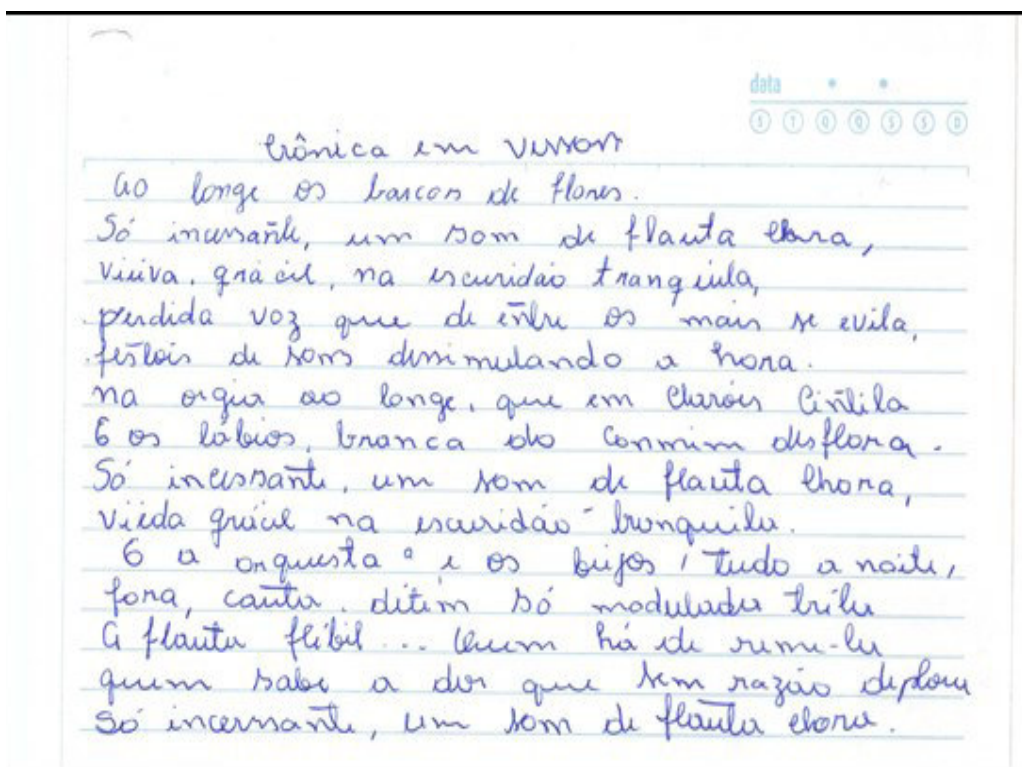 data
S T Q Q S S D
Crônica em versos
Ao longe os barcos de flores.
Só incessante, um som de flauta chora,
viúva, grácil, na escuridão tranquila,
perdida voz que de entre os mais se exila,
festões de sons dissimulando a hora.
na orgia ao longe, que em clarões cintila
E os lábios, branca do carmim desflora.
Só incessante, um som de flauta chora,
viúda grácil na escuridão tranquila.
E a orquesta e os beijos, tudo a noite,
fora, cauta. detém só modulada trila
A flauta flébil... Quem há de remi-la
quem sabe a dor que sem razão deplora
Só incessante, um som de flauta chora.